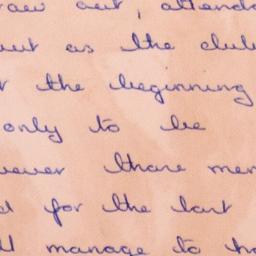 out, attenda
as the club
the beginning
only to be
those mem
for the last
manage to ha